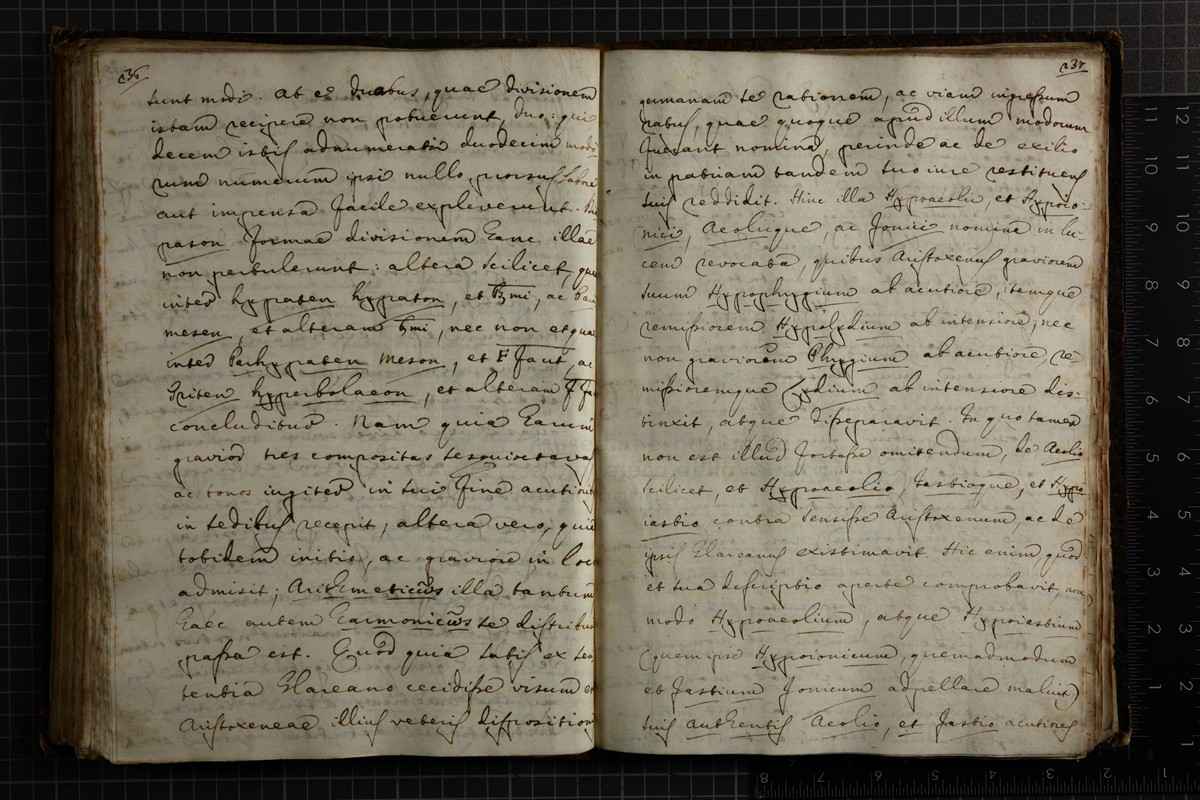 236
sunt modi. Ab eis duabus, quae divisionem
istam recipere non potuerunt, duo: qui
decem istis adnumerati duodecim modo
rum numerum ipsi nullo, prorsus labore
aut impensa facile expleverunt.
pason formae divisionem hanc illae
non pertulerunt: altera scilicet, quae
inter hypaten hypaton, et ♮ mi, ac Para
mesen, et alteram ♮ mi, nec non et quae
inter Parhypaten meson, et F faut, ac
Triten hyperbolaeon, et alteram F fa
concluditur. Nam quia harum
gravior tres compositas sesquioctavas
ac tonos iugiter in sui fine acutiorib
in sedibus recepit, altera vero, quia
totidem initio, ac graviore in loco
admisit; Arithmeticῶs illa tantum
haec autem harmonicῶs se distribui
passa est. Quod quia satis ex sen
tentia Glareano cecidisse visum est
Aristoxeneae illius veteris disposition
237
germanam se rationem, ac viam ingressum
ratus, quae quoque apud illum modorum
fuerant nomina, perinde ac de exilio
in patriam tandem suo iure restituens
suis reddidit. Hinc illa Hypoaeolii, et Hypoio-
nici, Aeoliique, ac Jonici nomina in lu-
cem revocata, quibus Aristoxenus graviorem
suum Hypophrygium ab acutiore, itemque
remissiorem Hypolydium ab intensiore, nec
non graviorem Phrygium ab acutiore, re-
missioremque Lydium ab intensiore dis-
tinxit, atque disseparavit. In quo tamen
non est illud fortasse omitendum, de Aeolio
scilicet, et Hypoaeolio, Iastioque, et Hypo
iastio contra sensisse Aristoxenum, ac de
ipsis Glareanus existimavit. Hic enim, quod
et sua descriptio aperte comprobavit, non
modo Hypoaeolium, atque Hypoiastium
(quem ipse Hypoionicum, quemadmodum
et Jastium Jonicum adpellare maluit)
suis authentis Aeolio, et Jastio acutiores